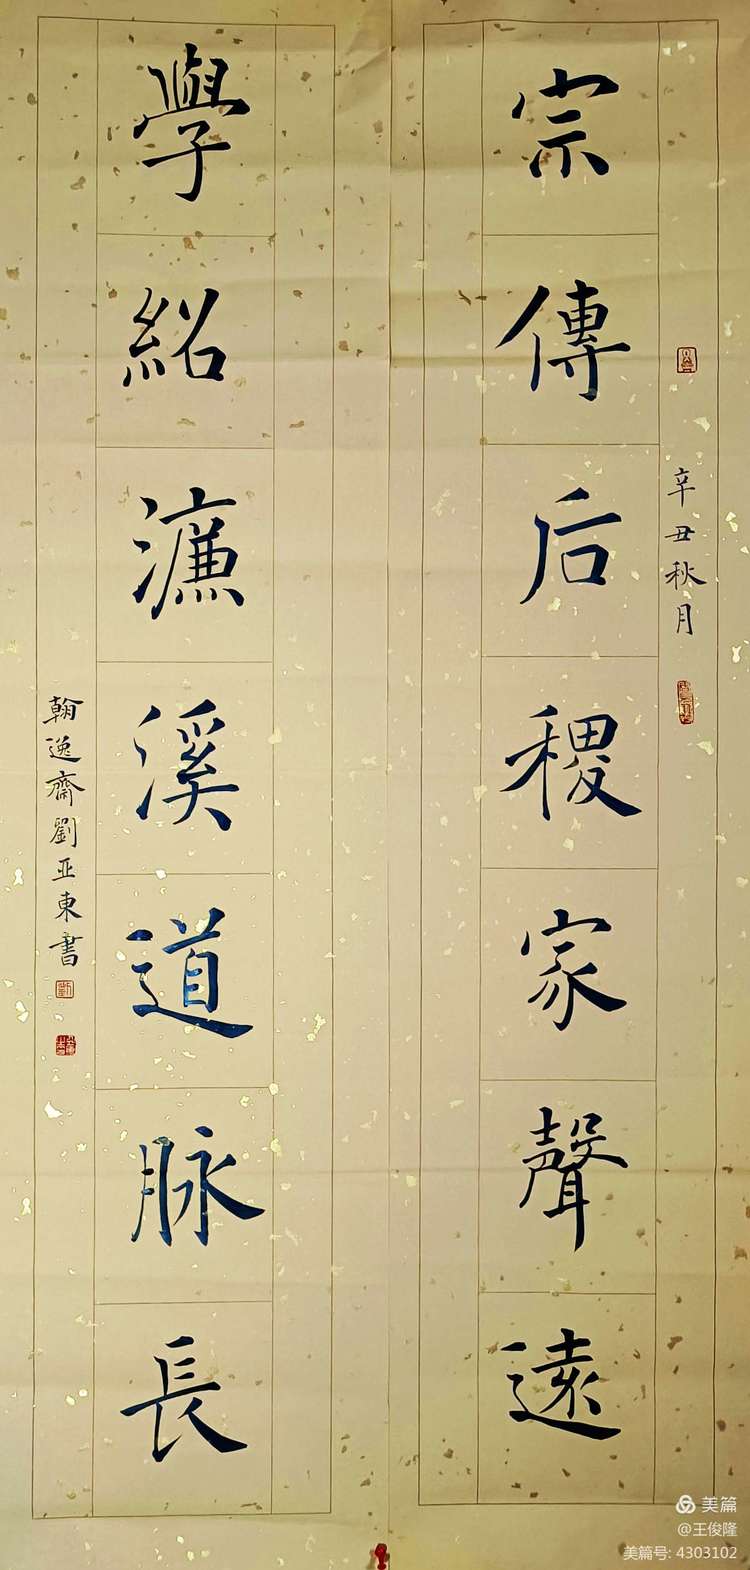 宗傳后稷家聲遠
辛丑秋月
學紹濂溪道脉長
翰逸齋劉亚東書
美篇
@王俊隆
美篇号: 4303102